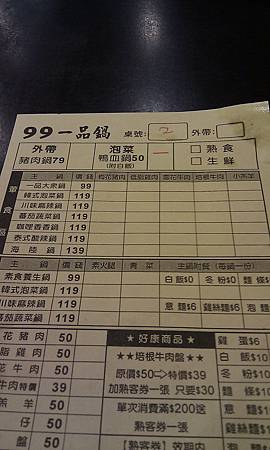 99一品鍋 桌號: 2 外帶:
外帶 豬肉鍋79
泡菜 鴨血鍋50 (附白飯) 一
□熟食 □生鮮
主鍋 價錢 梅花豬肉 低脂雞肉 雪花牛肉 培根牛肉 小羔羊
一品大衆鍋 99
韓式泡菜鍋 119
川味麻辣鍋 119
番茄蔬菜鍋 119
咖哩香香鍋 119
泰式酸辣鍋 119
海陸鍋 139
主鍋 價錢 素火腿 青菜 主鍋附餐(每鍋一份)
素食養生鍋 99 白飯$0 冬粉$0 麵條
韓式泡菜鍋 119
川味麻辣鍋 119 意麵$6 雞絲麵$6
番茄蔬菜鍋 119
花豬肉 50 ★好康商品★ 雞蛋$6
脂雞肉 50 ★★培根牛肉盤★★ 白飯$10
花牛肉 50 原價$50⇨特價$39 冬粉$10
牛肉特價 39 加熟客券一張 只要$30 麵條$10
羔羊 50 單次消費滿$200送 意麵$1
仔 50 熟客券一張 雞絲麵$1
盤 50 【熟客券】效期內